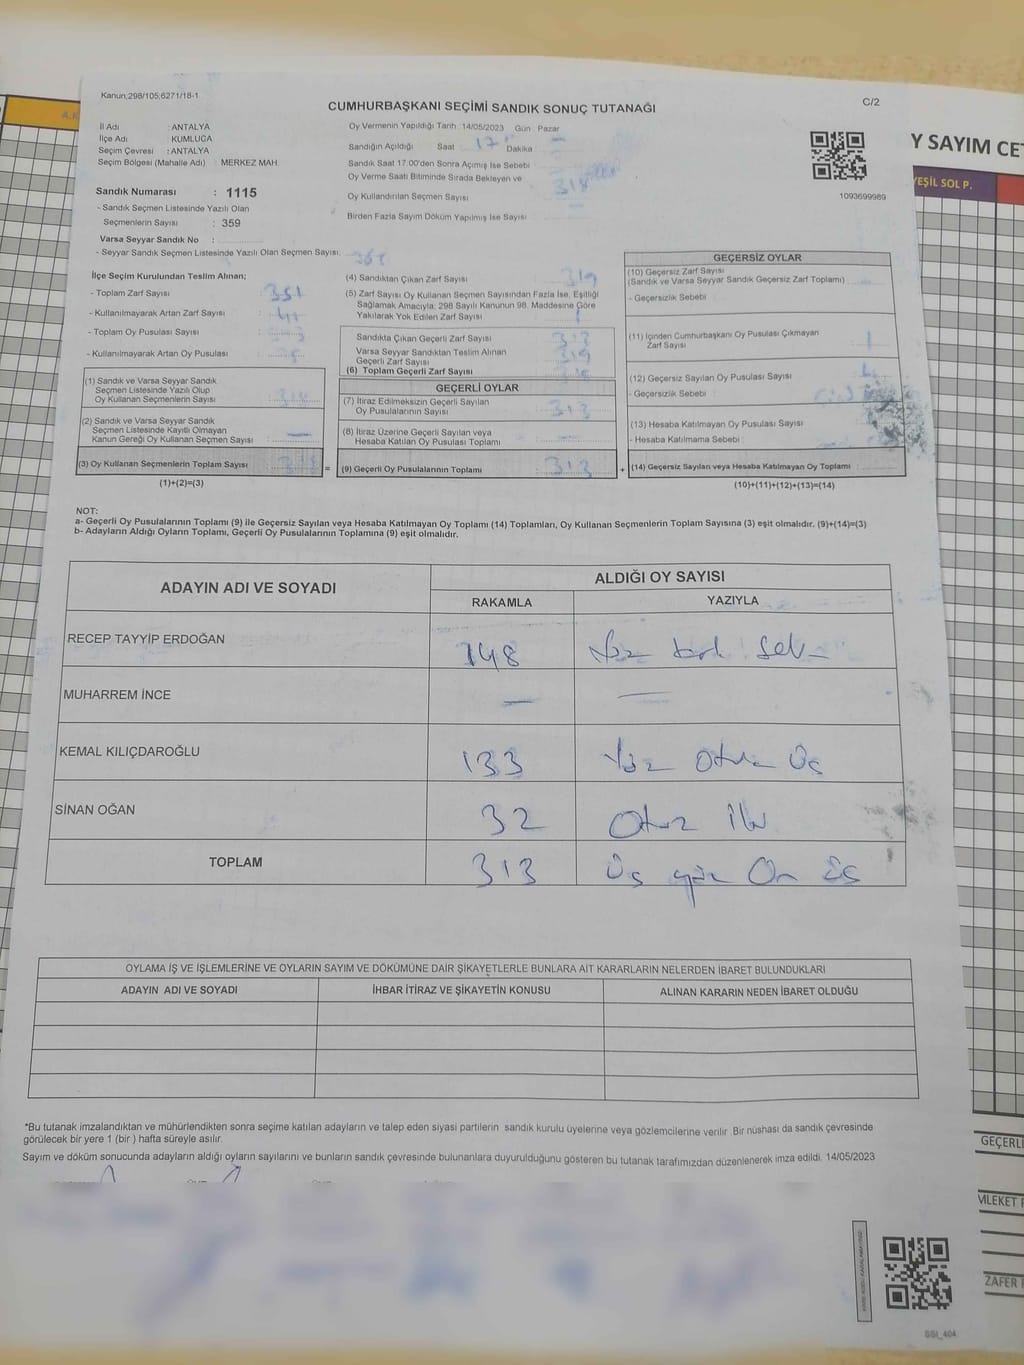 Kanun,298/105,6271/18-1
CUMHURBAŞKANI SEÇİMİ SANDIK SONUÇ TUTANAĞI
C/2
İl Adı : ANTALYA
İlçe Adı : KUMLUCA
Seçim Çevresi : ANTALYA
Seçim Bölgesi (Mahalle Adı) : MERKEZ MAH.
Sandık Numarası : 1115
- Sandık Seçmen Listesinde Yazılı Olan
Seçmenlerin Sayısı : 359
Varsa Seyyar Sandık No :
- Seyyar Sandık Seçmen Listesinde Yazılı Olan Seçmen Sayısı:
Oy Vermenin Yapıldığı Tarih :14/05/2023 Gün : Pazar
Sandığın Açıldığı Saat 17 Dakika
Sandık Saat 17.00'den Sonra Açımış İse Sebebi
Oy Verme Saati Bitiminde Sırada Bekleyen ve
Oy Kullandırılan Seçmen Sayısı 318
Birden Fazla Sayım Döküm Yapılmış İse Sayısı
1093699989
Y SAYIM CE
YEŞİL SOL P.
İlçe Seçim Kurulundan Teslim Alınan;
- Toplam Zarf Sayısı 351
- Kullanılmayarak Artan Zarf Sayısı
- Toplam Oy Pusulası Sayısı
- Kullanılmayarak Artan Oy Pusulası
(1) Sandık ve Varsa Seyyar Sandık
Seçmen Listesinde Yazılı Olup
Oy Kullanan Seçmenlerin Sayısı 318
(2) Sandık ve Varsa Seyyar Sandık
Seçmen Listesinde Kayıtlı Olmayan
Kanun Gereği Oy Kullanan Seçmen Sayısı : —
(3) Oy Kullanan Seçmenlerin Toplam Sayısı 318
(1)+(2)=(3)
(4) Sandıktan Çıkan Zarf Sayısı 319
(5) Zarf Sayısı Oy Kullanan Seçmen Sayısından Fazla İse, Eşitliği
Sağlamak Amacıyla; 298 Sayılı Kanunun 98. Maddesine Göre
Yakılarak Yok Edilen Zarf Sayısı
Sandıkta Çıkan Geçerli Zarf Sayısı
Varsa Seyyar Sandıktan Teslim Alınan
Geçerli Zarf Sayısı
(6) Toplam Geçerli Zarf Sayısı
GEÇERLİ OYLAR
(7) İtiraz Edilmeksizin Geçerli Sayılan
Oy Pusulalarının Sayısı : 313
(8) İtiraz Üzerine Geçerli Sayılan veya
Hesaba Katılan Oy Pusulası Toplamı : —
= (9) Geçerli Oy Pusulalarının Toplamı : 313
GEÇERSİZ OYLAR
(10) Geçersiz Zarf Sayısı
(Sandık ve Varsa Seyyar Sandık Geçersiz Zarf Toplamı)
- Geçersizlik Sebebi
(11) İçinden Cumhurbaşkanı Oy Pusulası Çıkmayan
Zarf Sayısı 1
(12) Geçersiz Sayılan Oy Pusulası Sayısı
- Geçersizlik Sebebi
(13) Hesaba Katılmayan Oy Pusulası Sayısı
- Hesaba Katılmama Sebebi
+ (14) Geçersiz Sayılan veya Hesaba Katılmayan Oy Toplamı :
(10)+(11)+(12)+(13)=(14)
NOT:
a- Geçerli Oy Pusulalarının Toplamı (9) ile Geçersiz Sayılan veya Hesaba Katılmayan Oy Toplamı (14) Toplamları, Oy Kullanan Seçmenlerin Toplam Sayısına (3) eşit olmalıdır. (9)+(14)=(3)
b- Adayların Aldığı Oyların Toplamı, Geçerli Oy Pusulalarının Toplamına (9) eşit olmalıdır.
ADAYIN ADI VE SOYADI ALDIĞI OY SAYISI
RAKAMLA YAZIYLA
RECEP TAYYİP ERDOĞAN 148 Yüz kırk Sek
MUHARREM İNCE — —
KEMAL KILIÇDAROĞLU 133 Yüz Otuz Üç
SİNAN OĞAN 32 Otuz İki
TOPLAM 313 Üç yüz On Üç
OYLAMA İŞ VE İŞLEMLERİNE VE OYLARIN SAYIM VE DÖKÜMÜNE DAİR ŞİKAYETLERLE BUNLARA AİT KARARLARIN NELERDEN İBARET BULUNDUKLARI
ADAYIN ADI VE SOYADI İHBAR İTİRAZ VE ŞİKAYETİN KONUSU ALINAN KARARIN NEDEN İBARET OLDUĞU
*Bu tutanak imzalandıktan ve mühürlendikten sonra seçime katılan adayların ve talep eden siyasi partilerin sandık kurulu üyelerine veya gözlemcilerine verilir. Bir nüshası da sandık çevresinde
görülecek bir yere 1 (bir ) hafta süreyle asılır.
Sayım ve döküm sonucunda adayların aldığı oyların sayılarını ve bunların sandık çevresinde bulunanlara duyurulduğunu gösteren bu tutanak tarafımızdan düzenlenerek imza edildi. 14/05/2023
GEÇERLİ
MLEKET
ZAFER
SSI_404